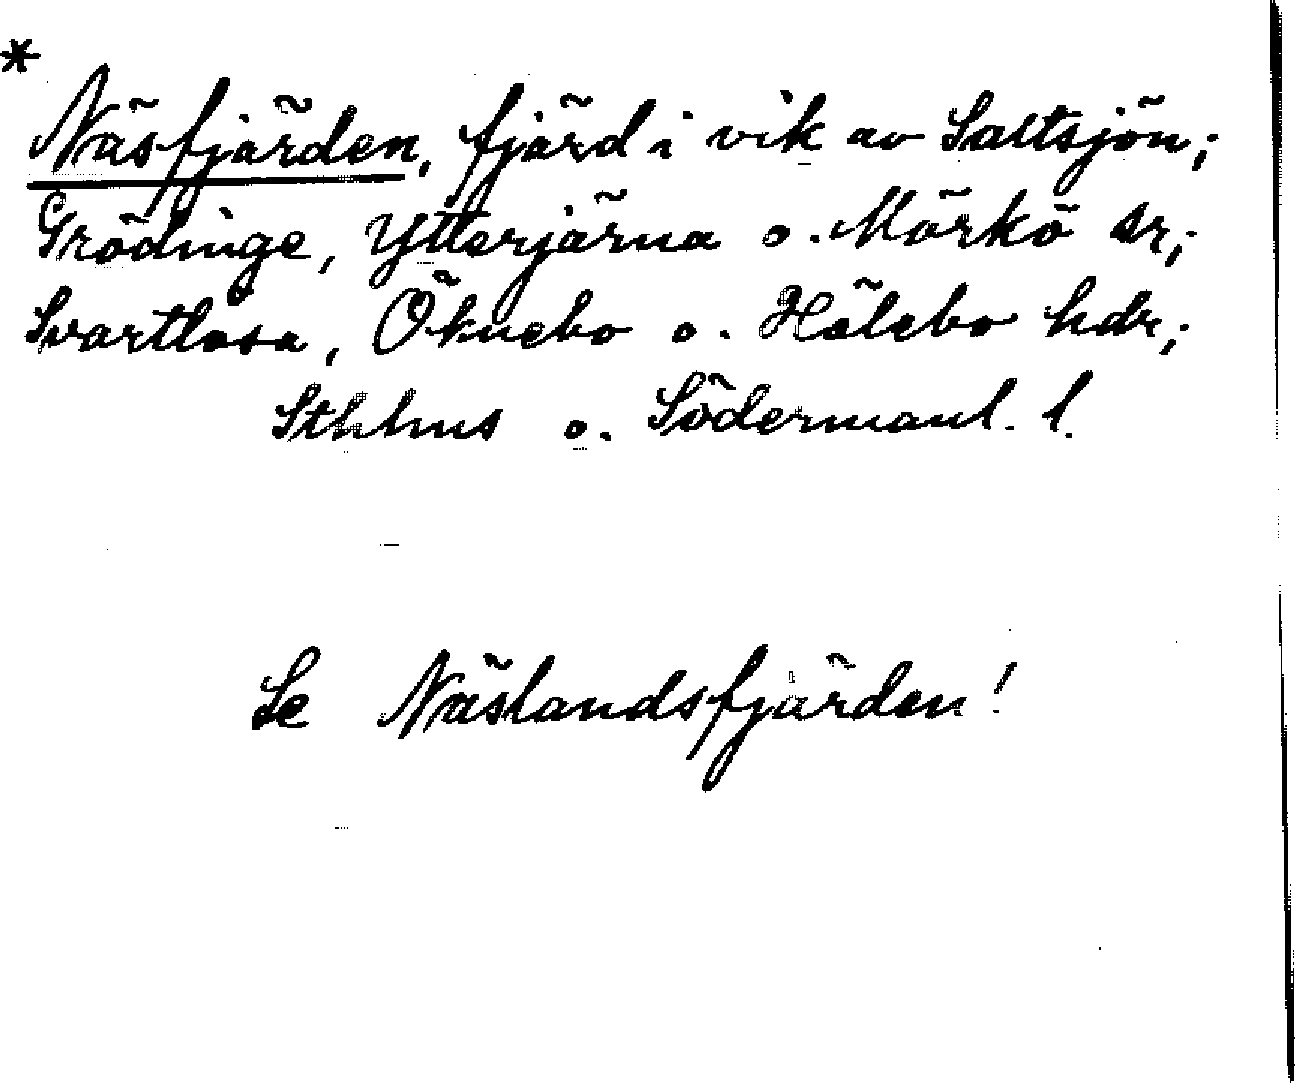 *
Näsfjärden, fjärd i vik av Saltsjön;
Grödinge, Ytterjärna o. Mörkö sr;
Svartlösa, Öknebo o. Hölebo hdr;
Sthlms o. Södermanl. l.
Se Näslandsfjärden!